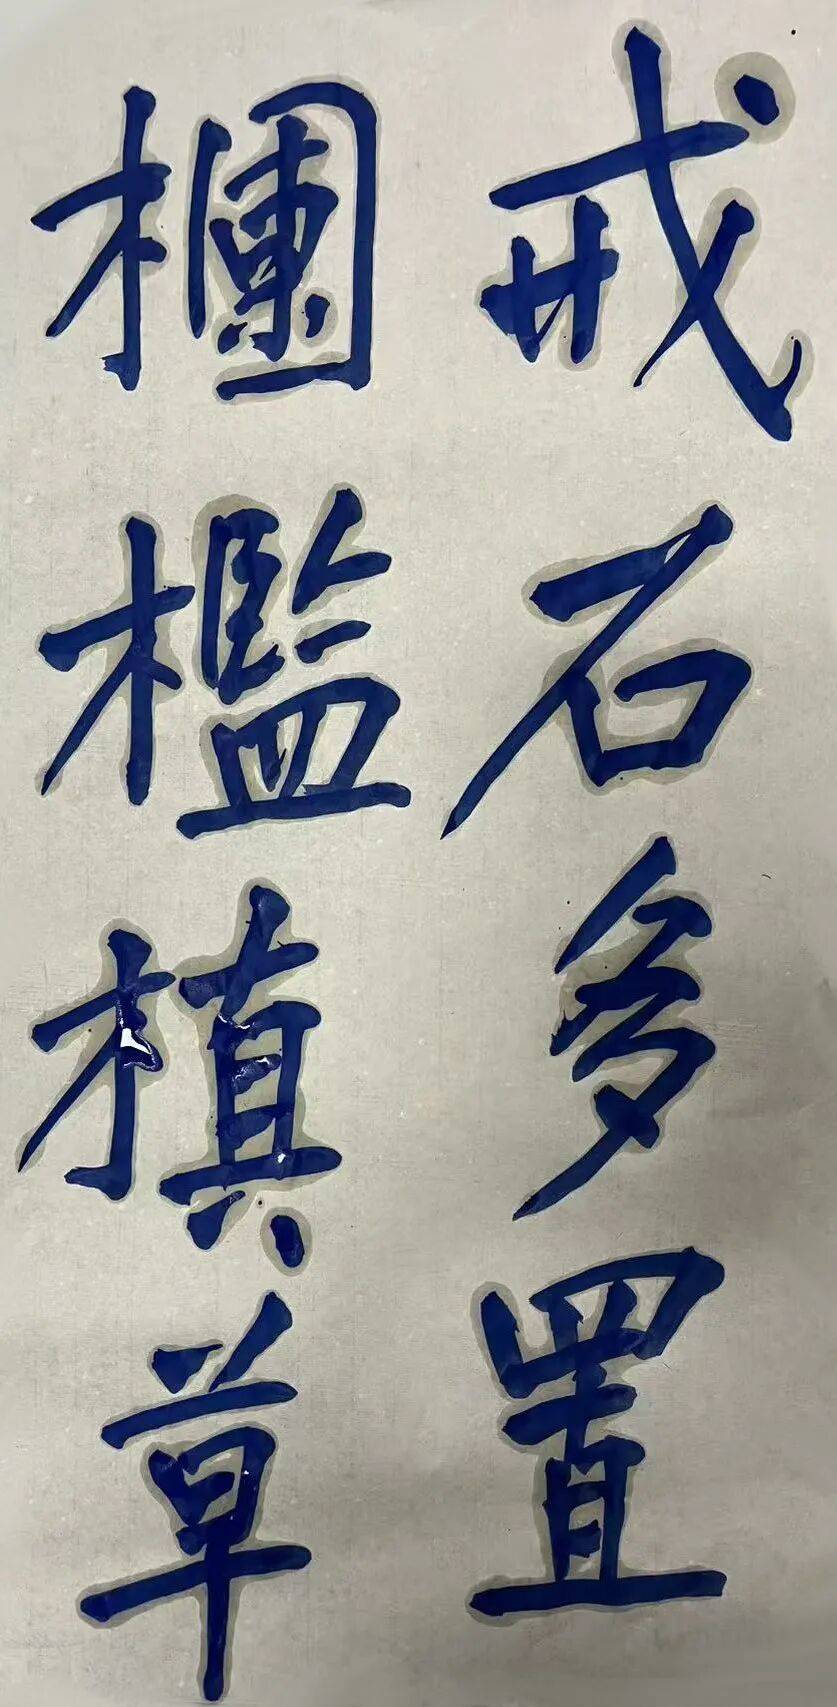 戒石多置
欄檻槙草